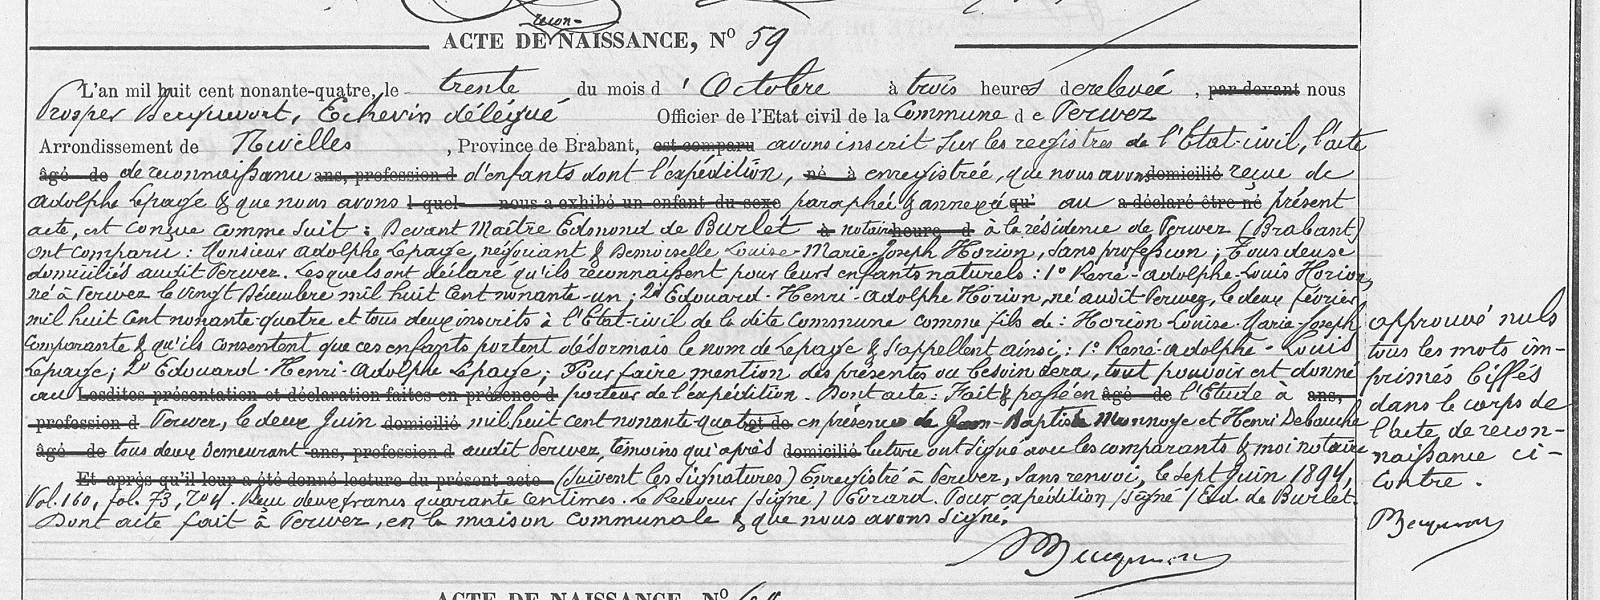 recon-
ACTE DE NAISSANCE, No 59
L'an mil huit cent nonante-quatre, le trente du mois d'Octobre à trois heures de relevée, par devant nous
Prosper Becquevort, Echevin délégué Officier de l'Etat civil de la Commune de Perwez
Arrondissement de Nivelles, Province de Brabant, est comparu avons inscrit sur les registres de l'Etat-civil, l'acte
âgé de de reconnaissance ans, profession d d'enfants dont l'expédition, né à enregistrée, que nous avons domicilié reçue de
Adolphe Lepage & que nous avons l quel nous a exhibé un enfant du sexe paraphée & annexée qu' au a déclaré être né présent
acte, est conçue comme suit : Devant Maître Edmond de Burlet à notaire heure d à la résidence de Perwez (Brabant)
ont comparu : Monsieur Adolphe Lepage, négociant & Demoiselle Louise-Marie-Joseph Horion, sans profession ; tous deux
domiciliés audit Perwez. Lesquels ont déclaré qu'ils reconnaissent pour leurs enfants naturels : 1o René-Adolphe-Louis Horion,
né à Perwez le vingt Décembre mil huit cent nonante-un ; 2o Edouard-Henri-Adolphe Horion, né audit Perwez, le deux février
mil huit cent nonante-quatre et tous deux inscrits à l'Etat-civil de la dite Commune comme fils de : Horion Louise-Marie-Joseph
comparante & qu'ils consentent que ces enfants portent désormais le nom de Lepage & s'appellent ainsi : 1o René-Adolphe-Louis
Lepage ; 2o Edouard-Henri-Adolphe Lepage ; Pour faire mention des présentes où besoin sera, tout pouvoir est donné
au Lesdites présentation et déclaration faites en présence d porteur de l'expédition. Dont acte : Fait & passé en âgé de l'Etude à ans,
profession d Perwez, le deux Juin domicilié mil huit cent nonante quatre et de en présence de Jean-Baptiste Monnoye et Henri Debauche
âgé de tous deux demeurant ans, profession d audit Perwez, témoins qui après domicilié lecture ont signé avec les comparants & moi notaire
Et après qu'il leur a été donné lecture du présent acte (suivent les signatures) Enregistré à Perwez, sans renvoi, le sept Juin 1894,
Vol. 160, fol. 73, Reçu deux francs quarante centimes. Le Receveur (signé) Evrard. Pour expédition (signé) Ed. de Burlet.
Dont acte fait à Perwez, en la maison communale & que nous avons signé.
Becquevort
approuvé nuls
tous les mots im-
primés biffés
dans le corps de
l'acte de recon-
naissance ci-
contre.
Becquevort
ACTE DE NAISSANCE, No